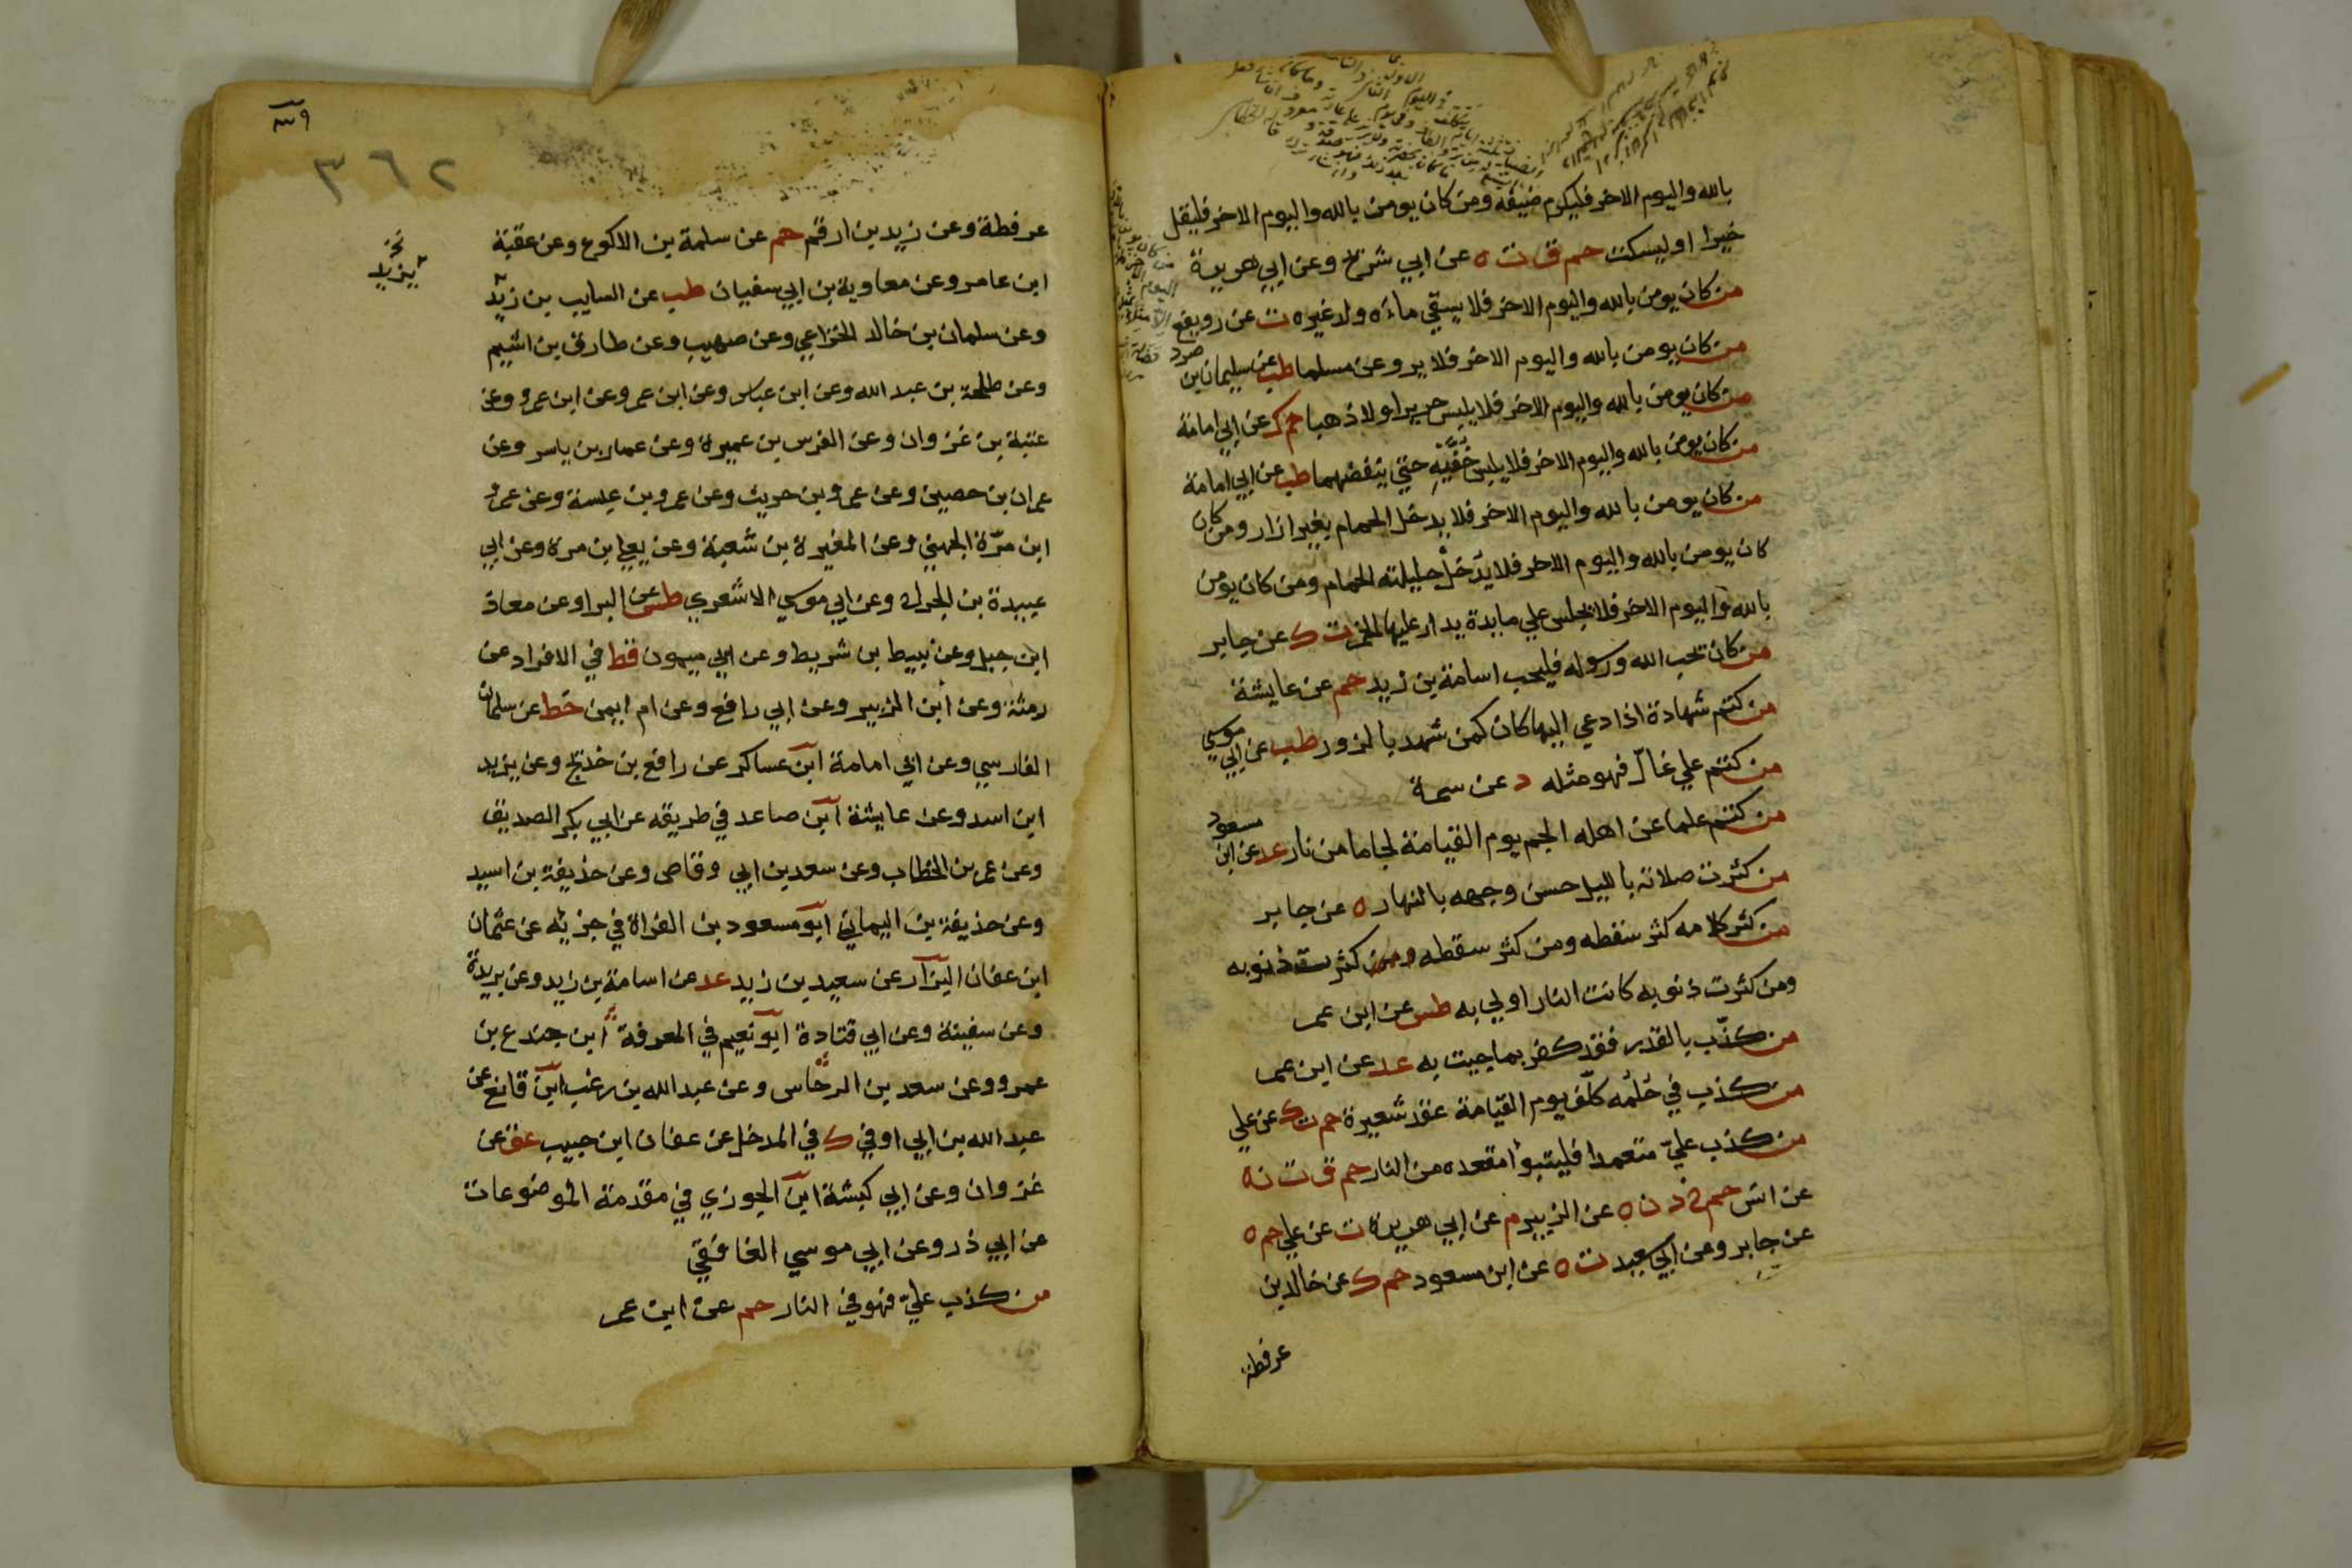 بالله واليوم الاخر فليكرم ضيفه ومن كان يومن بالله واليوم الاخر فليقل
خيرا او ليسكت حم ق ت ه عن ابي شريح وعن ابي هريرة
من كان يومن بالله واليوم الاخر فلا يسقي ماءه ولد غيره ت عن رويفع
من كان يومن بالله واليوم الاخر فلا يروعن مسلما طب عن سليمان بن صرد
من كان يومن بالله واليوم الاخر فلا يلبس حريرا ولا ذهبا حم ك عن ابي امامة
من كان يومن بالله واليوم الاخر فلا يلبس خفيه حتي ينفضهما طب عن ابي امامة
من كان يومن بالله واليوم الاخر فلا يدخل الحمام بغير ازار ومن كان
كان يومن بالله واليوم الاخر فلا يدخل حليلته الحمام ومن كان يومن
بالله واليوم الاخر فلا يجلس علي مايدة يدار عليها الخمر ت ك عن جابر
من كان يحب الله ورسوله فليحب اسامة بن زيد حم عن عايشة
من كتم شهادة اذا دعي اليها كان كمن شهد بالزور طب عن ابي موسي
من كتم علي غال فهو مثله د عن سمرة
من كتم علما عن اهله الجم يوم القيامة لجاما من نار عد عن ابن مسعود
من كثرت صلاته بالليل حسن وجهه بالنهار ه عن جابر
من كثر كلامه كثر سقطه ومن كثر سقطه ومن كثر سقـ ذنوبه
ومن كثرت ذنوبه كانت النار اولي به طس عن ابن عمر
من كذّب بالقدر فقد كفر بما جيت به عد عن ابن عمر
من كذب في حُلُمه كلّف يوم القيامة عقد شعيرة حم ت ك عن علي
من كذب عليّ متعمدا فليتبوأ مقعده من النار حم ق ت ن ه
عن انس حم خ د ن ه عن الزبير م عن ابي هريرة ت عن علي حم ه
عن جابر وعن ابي سعيد ت ه عن ابن مسعود حم ك عن خالد بن
عرفطة
٣٦٢
عرفطة وعن زيد بن ارقم حم عن سلمة بن الاكوع وعن عقبة
ابن عامر وعن معاوية بن ابي سفيان طب عن السايب بن زيد
يزيد
وعن سلمان بن خالد الخزاعي وعن صهيب وعن طارق بن اشيم
وعن طلحة بن عبد الله وعن ابن عباس وعن ابن عمر وعن ابن عمرو وعن
عتبة بن غزوان وعن الغرس بن عميرة وعن عمار بن ياسر وعن
عمران بن حصيين وعن عمرو بن حريث وعن عمرو بن عبسة وعن عمرو
ابن مرّة الجهني وعن المغيرة بن شعبة وعن يعلي بن مرة وعن ابي
عبيدة بن الجراح وعن ابي موسي الاشعري طس عن البرا وعن معاذ
ابن جبل وعن نبيط بن شريط وعن ابي ميمون قط في الافراد عن
رمثة وعن ابن الزبير وعن ابي رافع وعن ام ايمن خط عن سلمان
الفارسي وعن ابي امامة ابن عساكر عن رافع بن خديج وعن يزيد
ابن اسد وعن عايشة ابن صاعد في طريقه عن ابي بكر الصديق
وعن عمر بن الخطاب وعن سعد بن ابي وقاص وعن حذيفة بن اسيد
وعن حذيفة بن اليماني ابو مسعود بن الفراة في جزيه عن عثمان
ابن عفان البزار عن سعيد بن زيد عد عن اسامة بن زيد وعن بريدة
وعن سفينة وعن ابي قتادة ابو نعيم في المعرفة ابن جندع بن
عمرو وعن سعد بن الرحاس وعن عبد الله بن زغب ابن قانع عن
عبد الله بن ابي اوفي ك في المدخل عن عفان ابن حبيب عق عن
غزوان وعن ابي كبشة ابن الجوزي في مقدمة الموضوعات
عن ابي ذر وعن ابي موسي الغافقي
من كذب عليّ فهو في النار حم عن ابن عمر